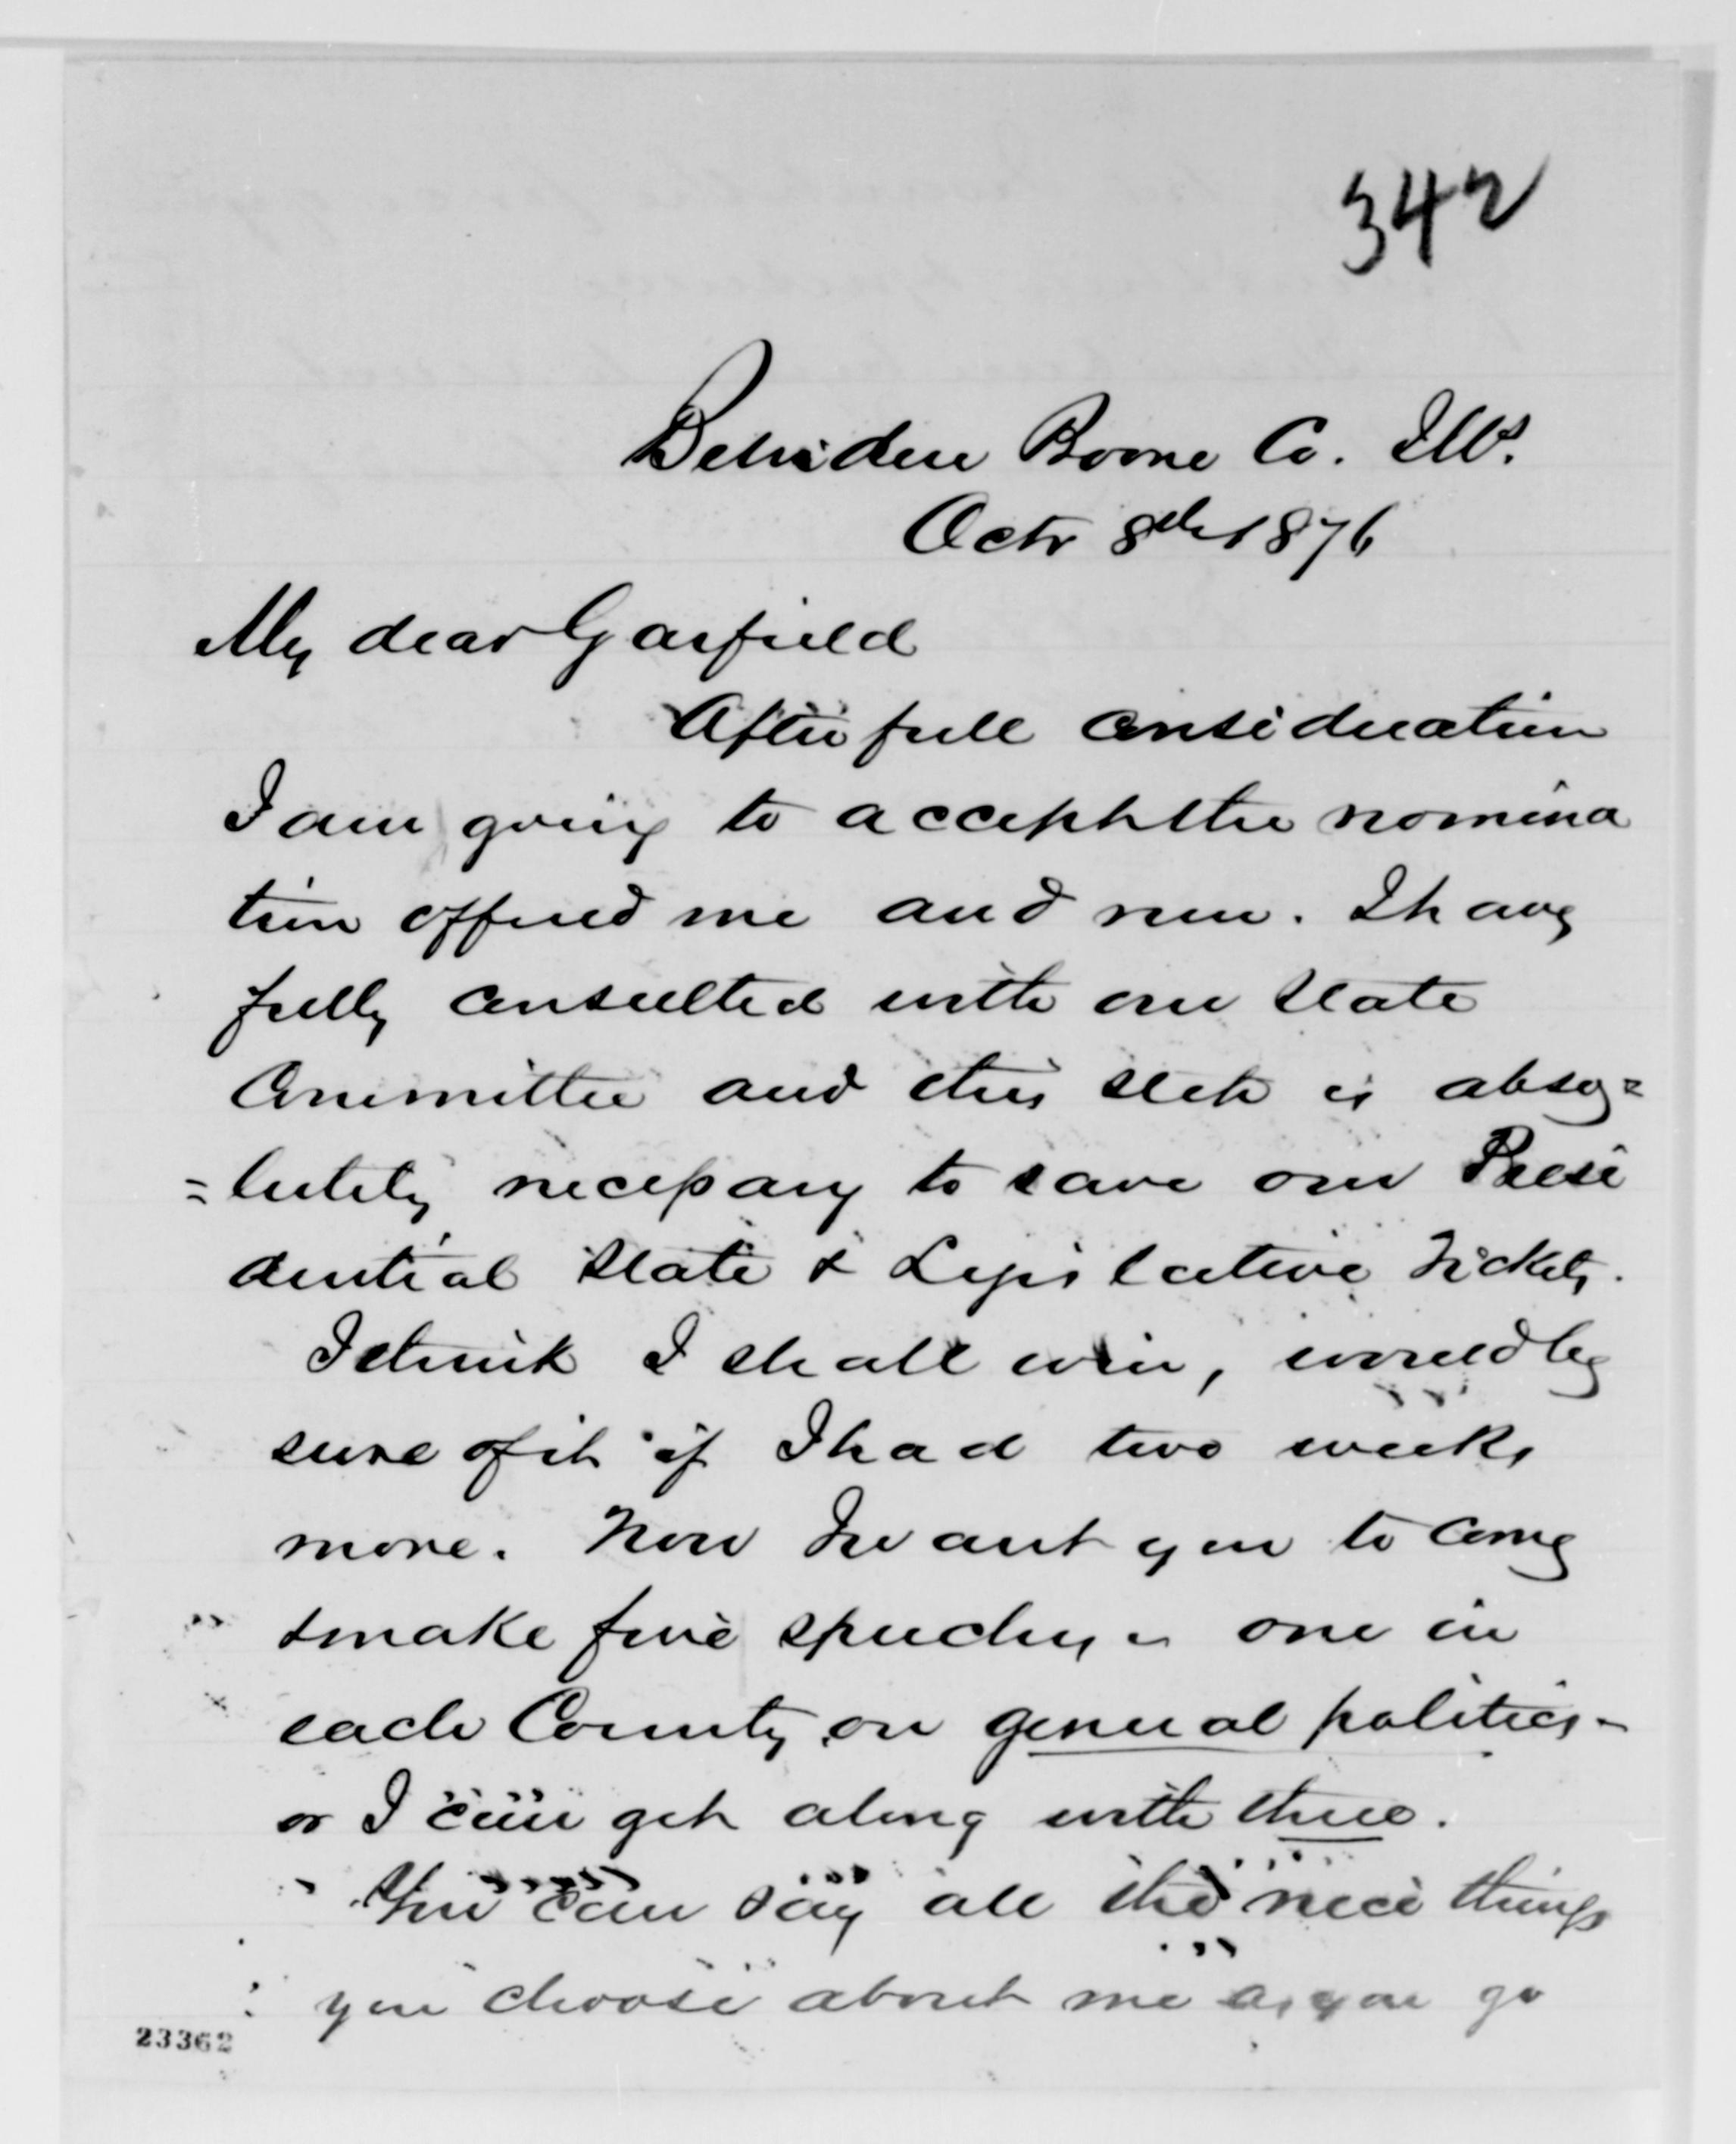 342
Belvidere Boone Co. Ills.
Octr 8th 1876
My dear Garfield
After full consideration
I am going to accept the nomina
tion offered me and run. I have
fully consulted with our State
Committee and this step is abso=
=lutely necessary to save our Presi
dential State & Legislative Tickets.
I think I shall win, would be
sure of it if I had two weeks
more. Now I want you to come
& make five speeches - one in
each County on general politics -
or I can get along with three.
You can say all the nice things
you choose about me as you go
23362